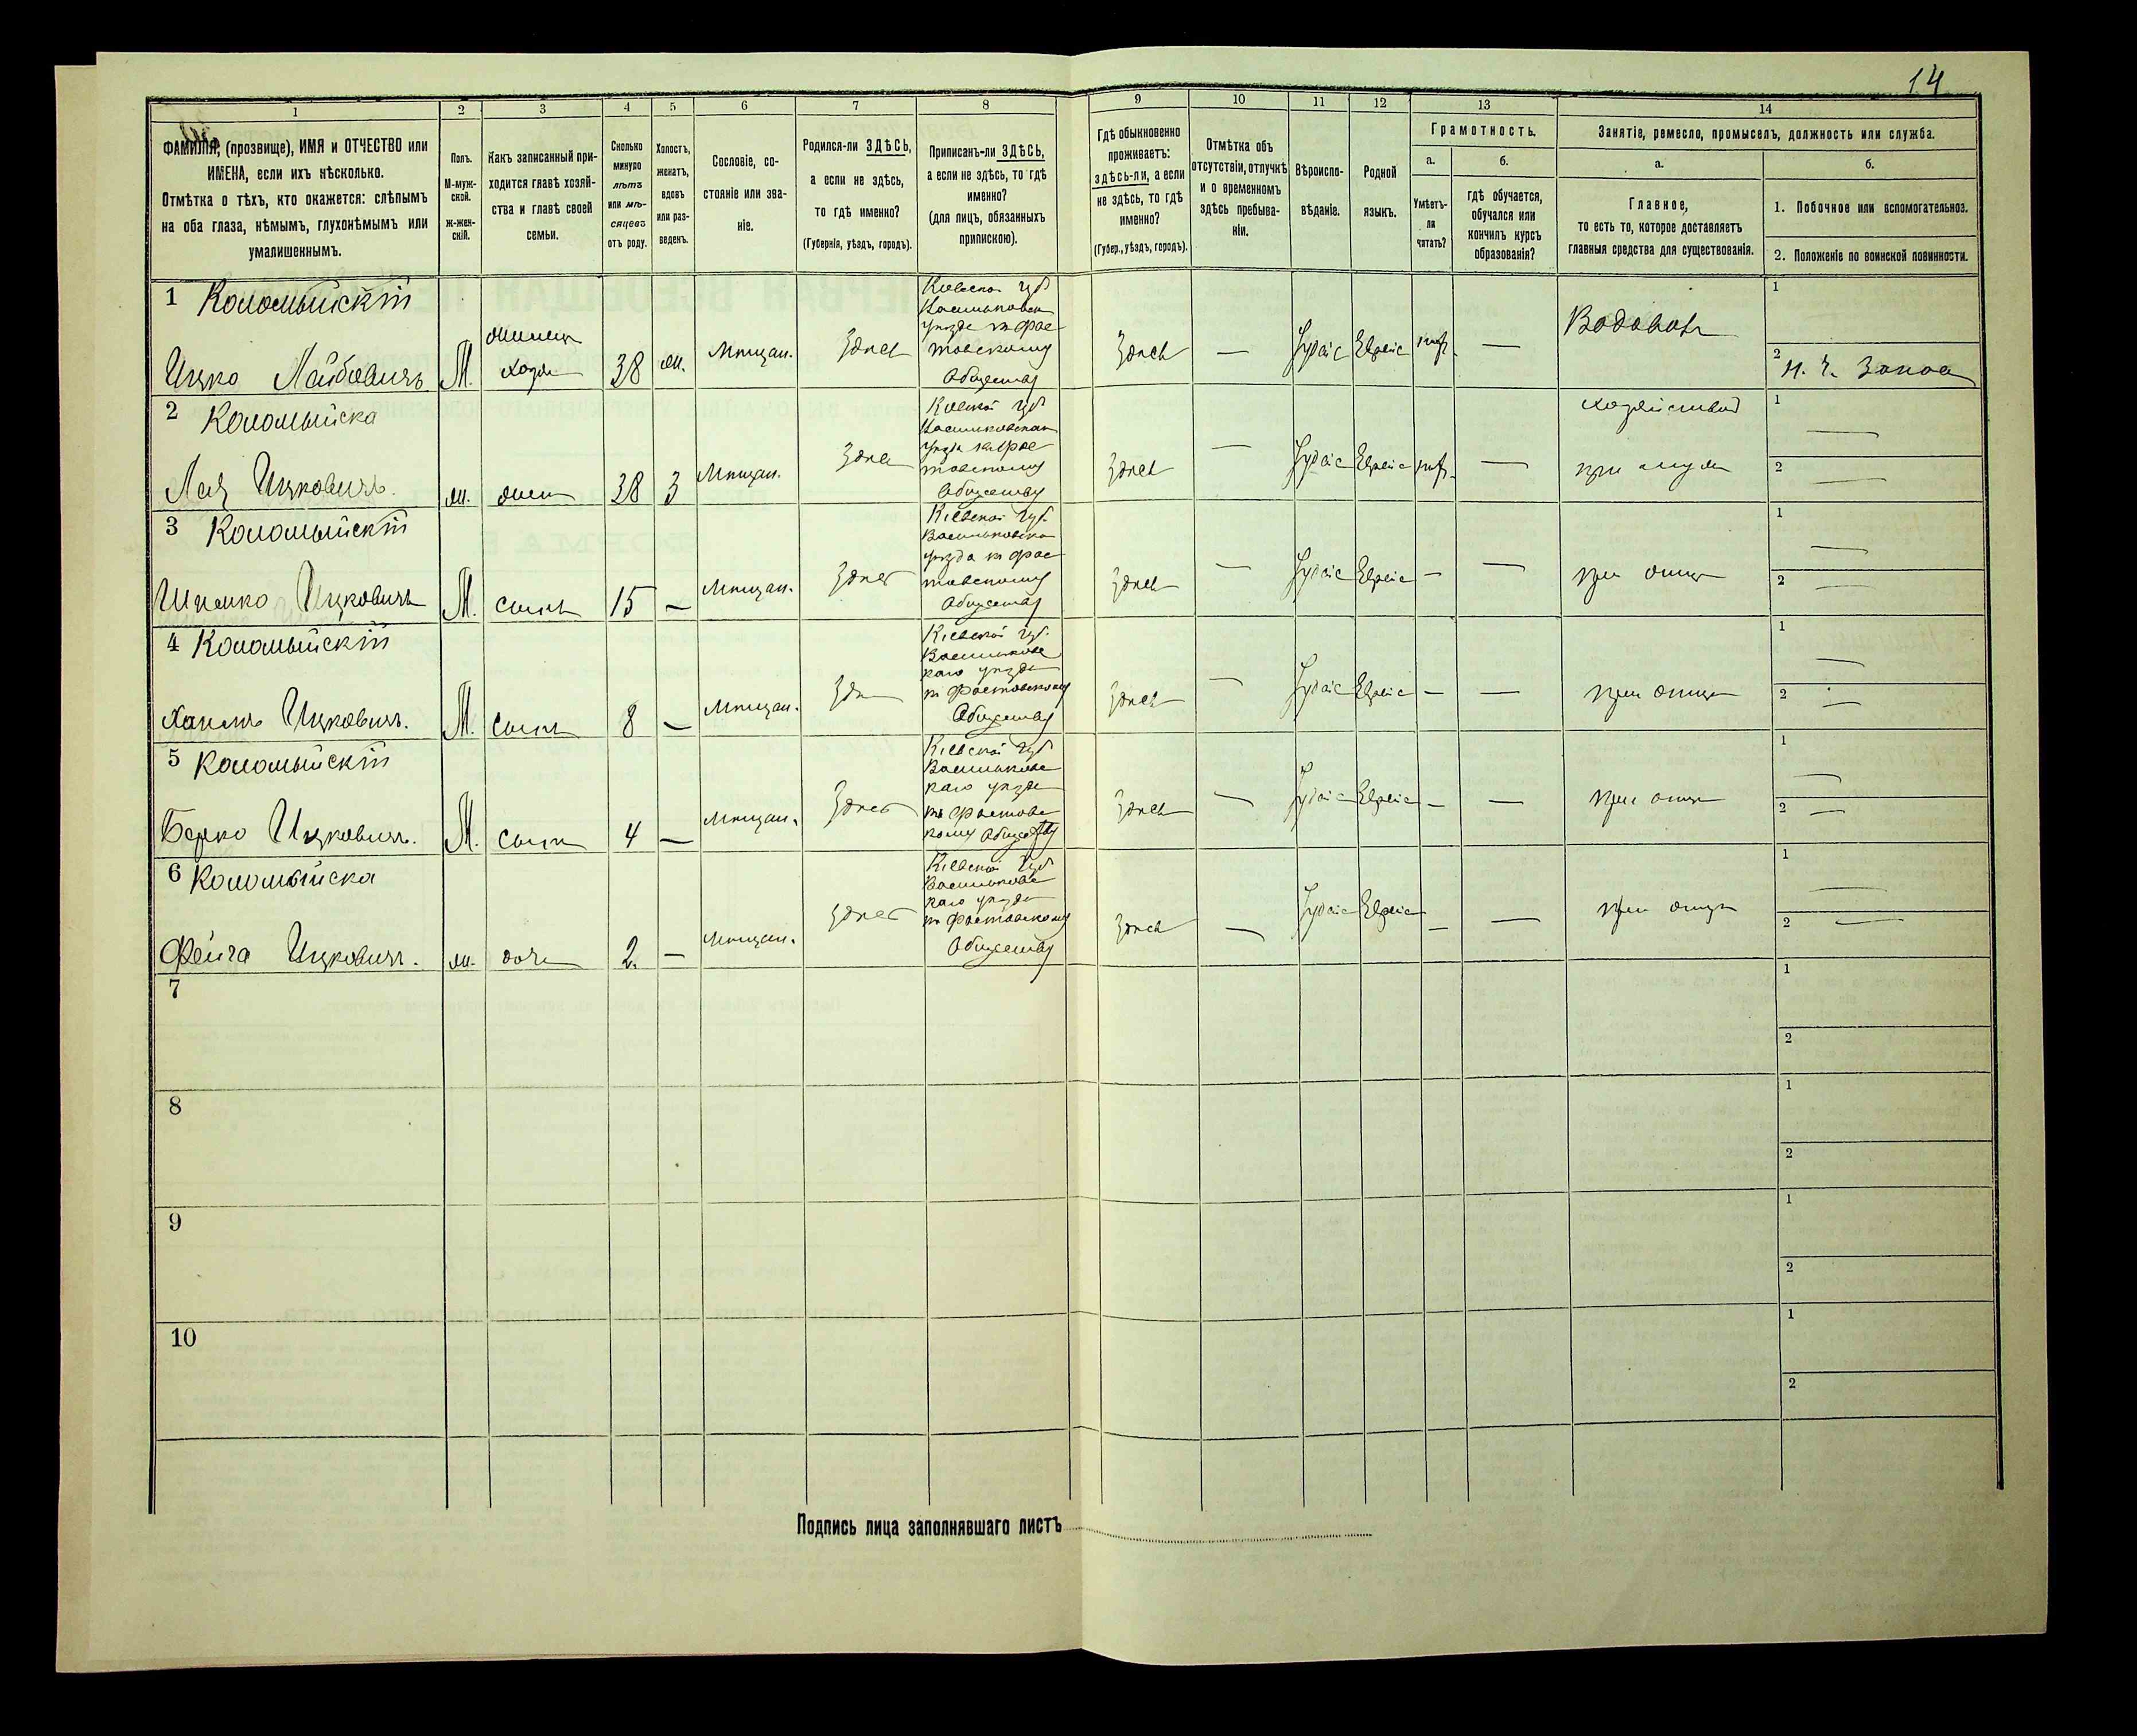 14
1 2 3 4 5 6 7 8 9 10 11 12 13 14
ФАМИЛІЯ, (прозвище), ИМЯ и ОТЧЕСТВО или
ИМЕНА, если ихъ нѣсколько.
Отмѣтка о тѣхъ, кто окажется: слѣпымъ
на оба глаза, нѣмымъ, глухонѣмымъ или
умалишеннымъ.
Полъ.
М-муж-
ской.
ж-жен-
скій.
Какъ записанный при-
ходится главѣ хозяй-
ства и главѣ своей
семьи.
Сколько
минуло
лѣтъ
или мѣ-
сяцевъ
отъ роду.
Холостъ,
женатъ,
вдовъ
или раз-
веденъ.
Сословіе, со-
стояніе или зва-
ніе.
Родился-ли ЗДѢСЬ,
а если не здѣсь,
то гдѣ именно?
(Губернія, уѣздъ, городъ).
Приписанъ-ли ЗДѢСЬ,
а если не здѣсь, то гдѣ
именно?
(для лицъ, обязанныхъ
припискою).
Гдѣ обыкновенно
проживаетъ:
здѣсь-ли, а если
не здѣсь, то гдѣ
именно?
(Губер., уѣздъ, городъ).
Отмѣтка объ
отсутствіи, отлучкѣ
и о временномъ
здѣсь пребыва-
ніи.
Вѣроиспо-
вѣданіе.
Родной
языкъ.
Грамотность.
а.
Умѣетъ-
ли
читать?
б.
гдѣ обучается,
обучался или
кончилъ курсъ
образованія?
Занятіе, ремесло, промыселъ, должность или служба.
а.
Главное,
то есть то, которое доставляетъ
главныя средства для существованія.
б.
1. Побочное или вспомогательное.
2. Положеніе по воинской повинности.
1 Коломыйскій
Ицко Лейбовичъ М. хозя 38 Мѣщан. Здѣсь
Кіевской Губ
уѣзда къ Фас
товскому
Обществу
Здѣсь — Іудейс Еврейс — Водовозъ
1
2
2 Коломыйска
Лея Ицковичъ. жена 38 З Мѣщан. Здѣсь
Кіевской Губ
уѣзда къ Фас
товскому
Обществу
Здѣсь — Іудейс Еврейс — хозяйствомъ
при мужѣ
1 —
2 —
3 Коломыйскій
Ицковичъ М. сынъ 15 — Мѣщан. Здѣсь
Кіевской Губ.
Васильковска
уѣзда къ Фас
товскому
Обществу
Здѣсь — Іудейс Еврейс — — при отцѣ
1 —
2 —
4 Коломыйскій
Ицковичъ. М. сынъ 8 — Мѣщан. Здѣ
Кіевской Губ.
Васильковс
каго уѣзда
къ Фастовскому
Обществу
Здѣсь — Іудейс Еврейс — — при отцѣ
1 —
2 —
5 Коломыйскій
Берко Ицкович. М. сынъ 4 — Мѣщан. Здѣсь
Кіевской Губ
Васильковс
каго уѣзда
къ Фастовс
кому Обществу
Здѣсь — Іудейс Еврейс — — при отцѣ
1 —
2 —
6 Коломыйска
Фейга Ицкович. доч 2. — Мѣщан. Здѣсь
Кіевской Губ
Васильковс
каго уѣзда
къ Фастовскому
Обществу
Здѣсь — Іудейс Еврейс — — при отцѣ
1 —
2 —
7
1
2
8
1
2
9
1
2
10
1
2
Подпись лица заполнявшаго листъ